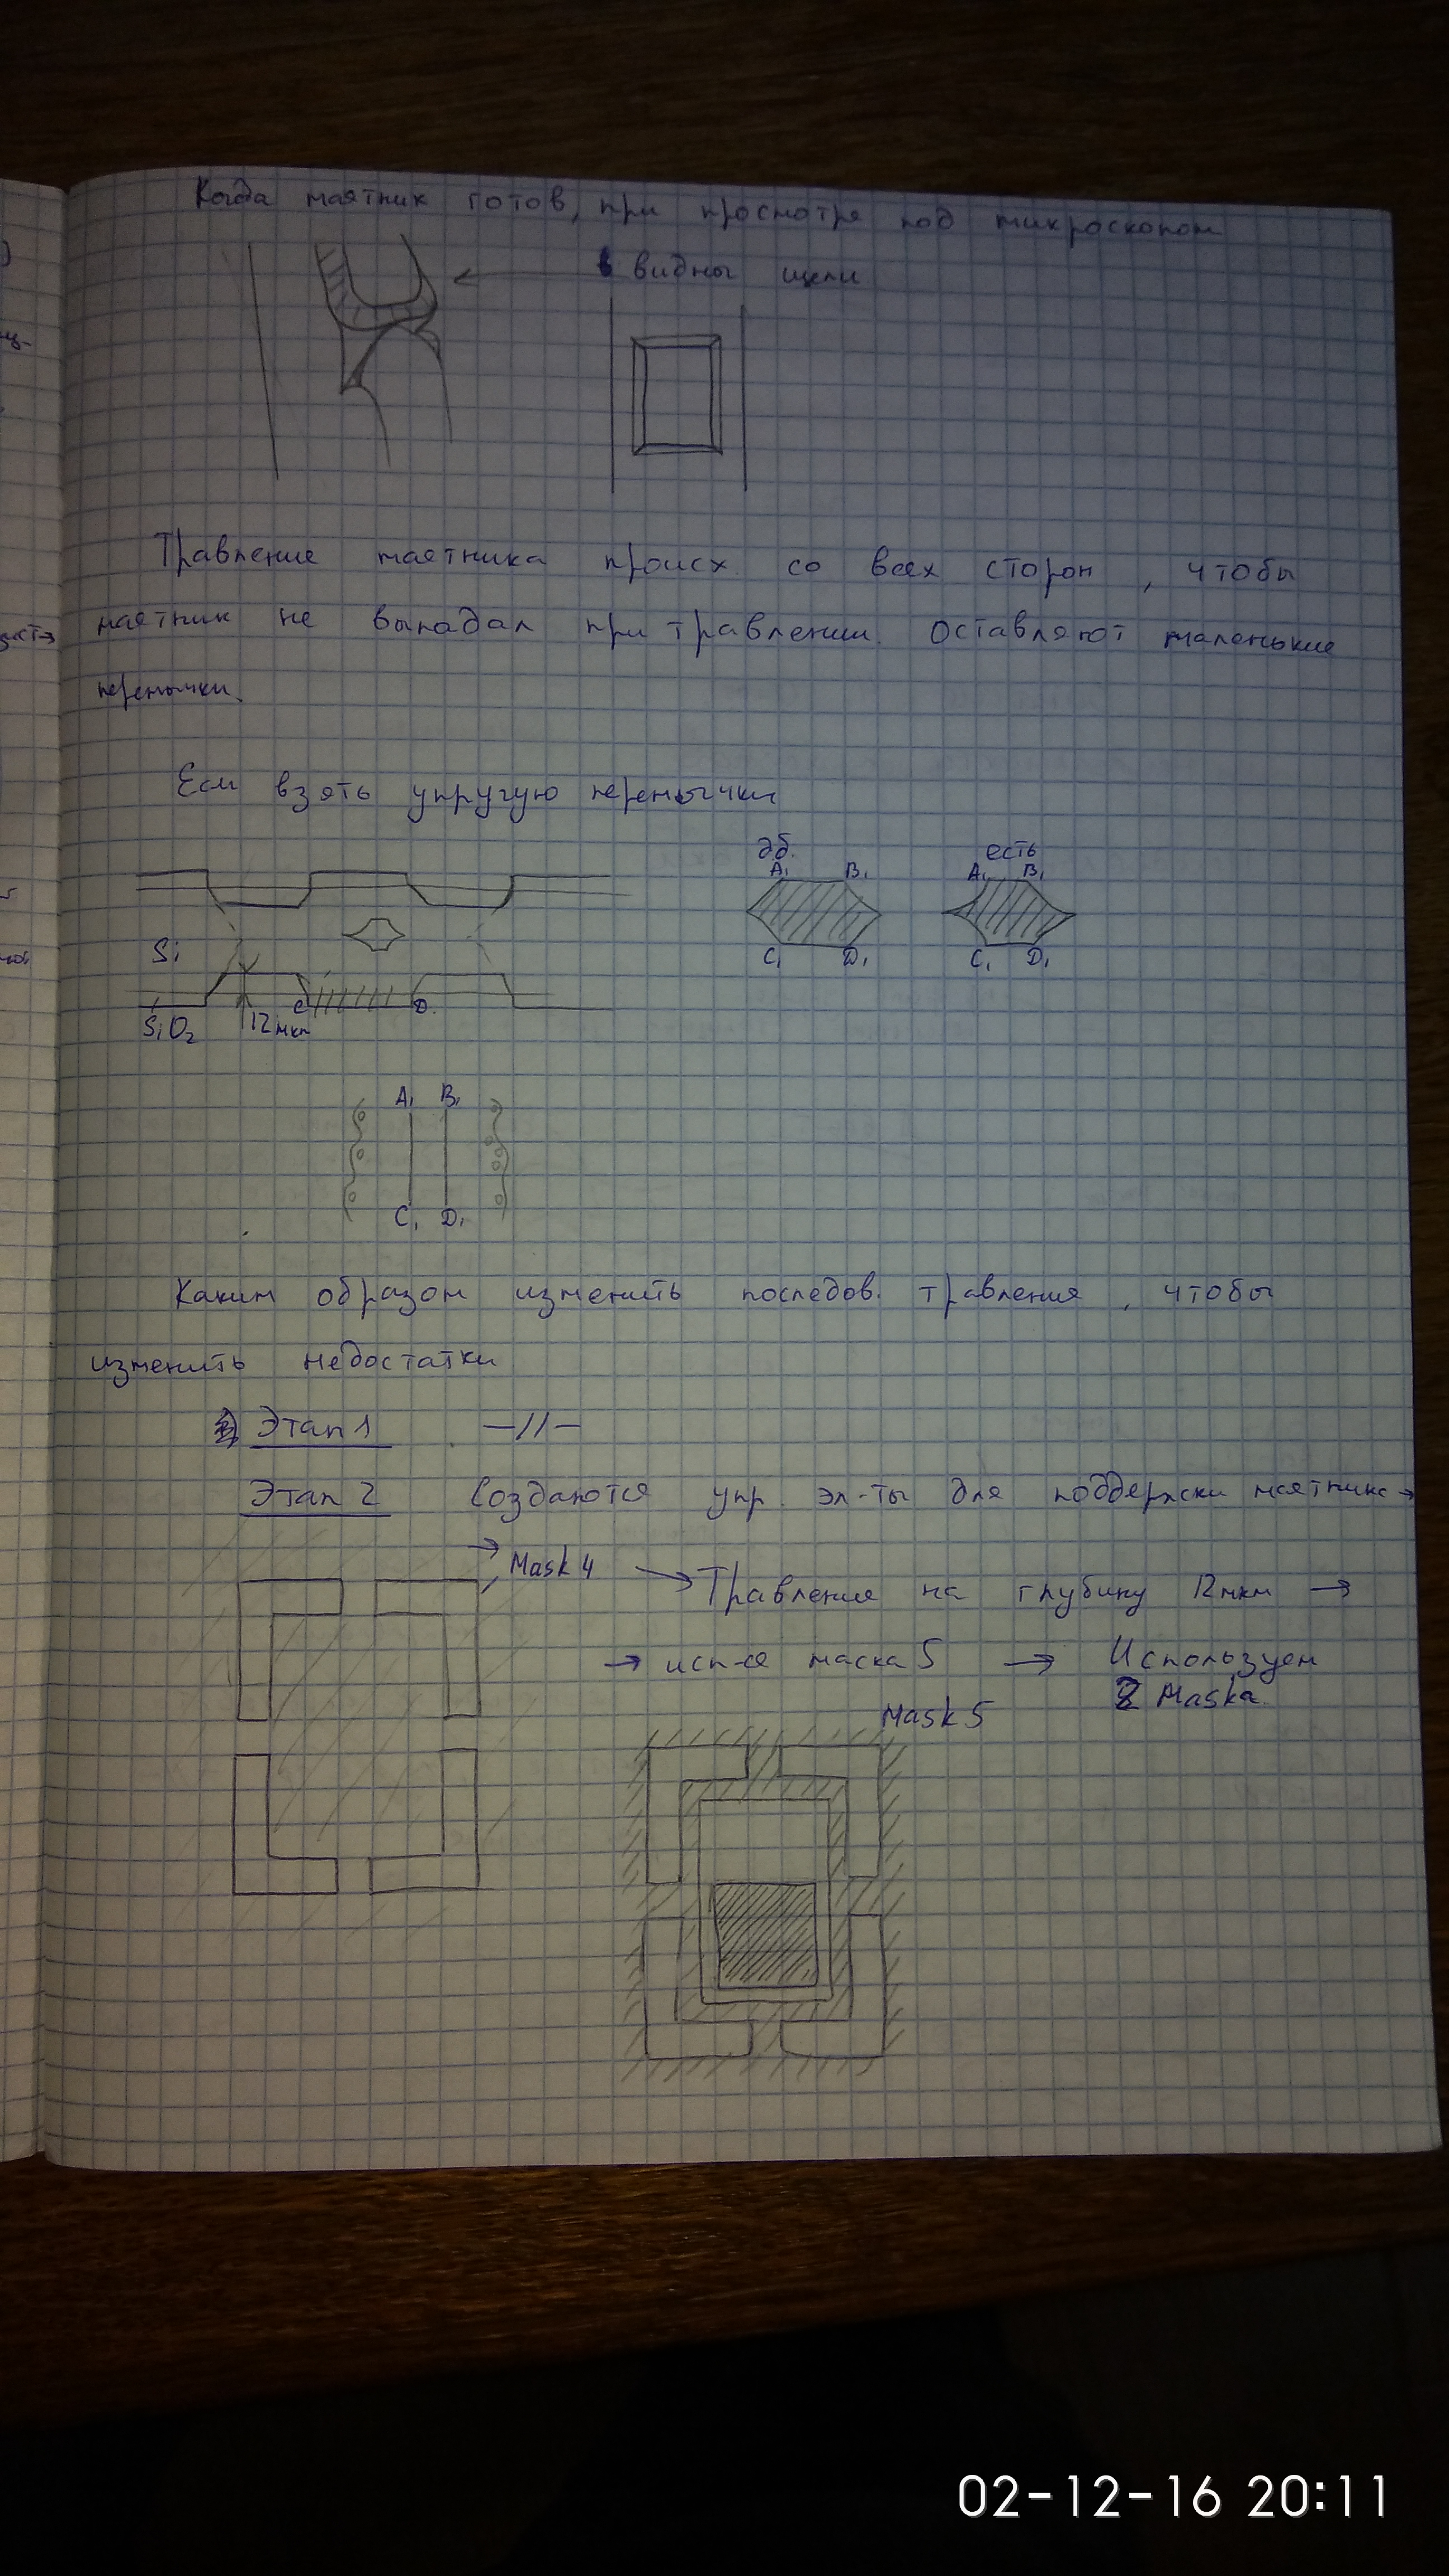 Когда маятник готов, при просмотре под микроскопом
видны щели
Травление маятника происх. со всех сторон, чтобы
маятник не выпадал при травлении. Оставляют маленькие
перемычки.
Если взять упругую перемычки
дб. есть
A₁ B₁ A₁ B₁
Si
C₁ D₁ C₁ D₁
C D
SiO₂ 12мкм
A₁ B₁
C₁ D₁
Каким образом изменить последов. травления, чтобы
изменить недостатки
Этап 1 —//—
Этап 2 Создаются упр. эл-ты для поддержки маятника →
→ Mask 4 → Травление на глубину 12мкм →
→ исп-ся маска 5 → Используем
2 Maska.
Mask 5
02-12-16 20:11